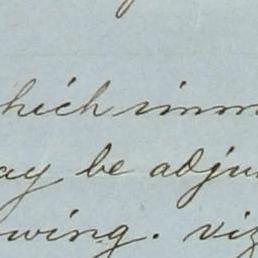 which imm
ay be adju
wing. viz